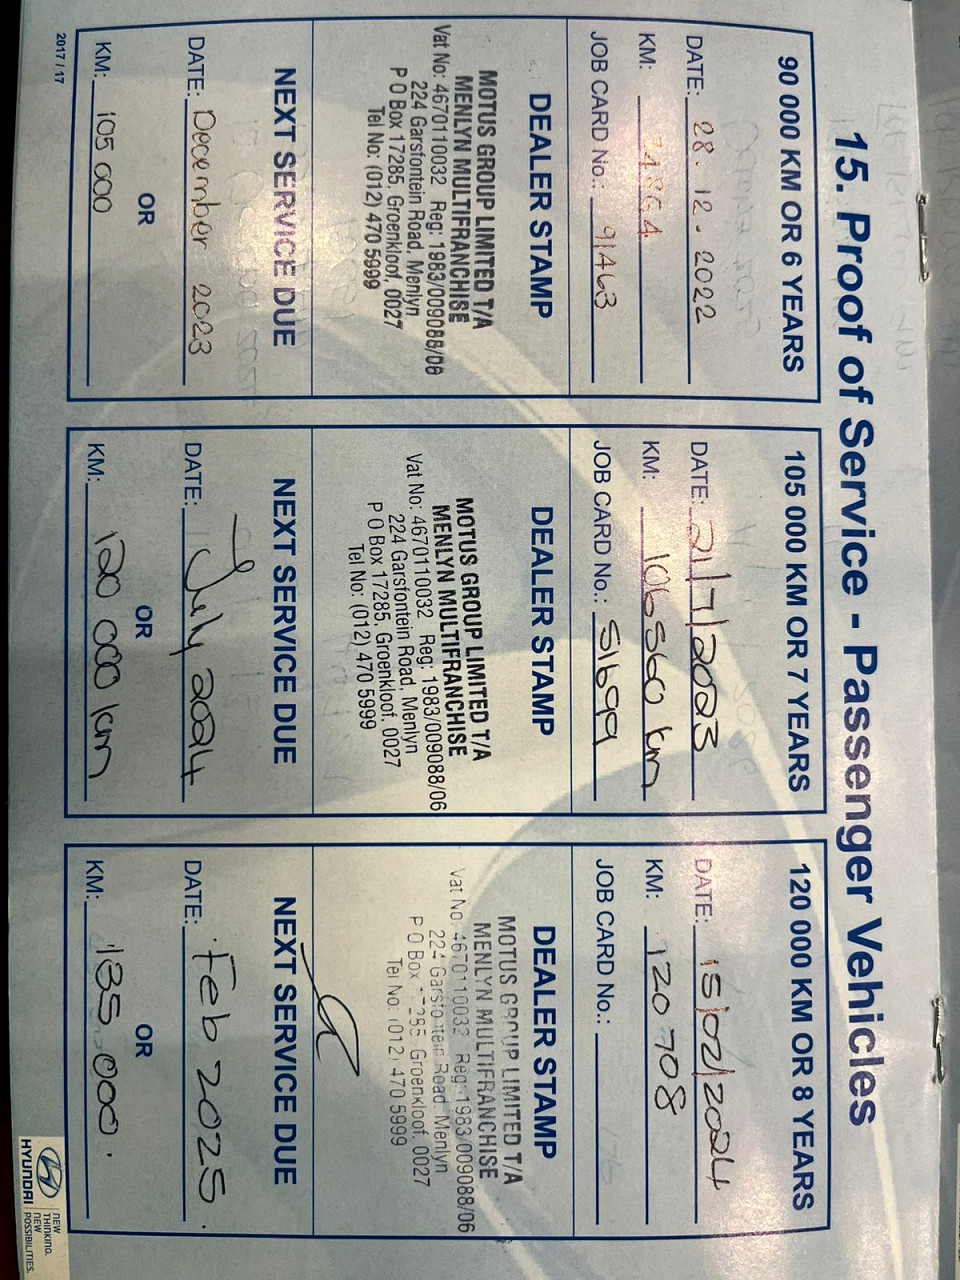 15. Proof of Service - Passenger Vehicles
90 000 KM OR 6 YEARS
DATE: 28.12.2022
KM:
JOB CARD No.: 91463
DEALER STAMP
MOTUS GROUP LIMITED T/A
MENLYN MULTIFRANCHISE
Vat No: 4670110032 Reg: 1983/009088/06
224 Garsfontein Road, Menlyn
P O Box 17285, Groenkloof, 0027
Tel No: (012) 470 5999
NEXT SERVICE DUE
DATE: December 2023
OR
KM: 105 000
2017/17
105 000 KM OR 7 YEARS
DATE: 21/7/2023
KM: 106560 km
JOB CARD No.: 51699
DEALER STAMP
MOTUS GROUP LIMITED T/A
MENLYN MULTIFRANCHISE
Vat No: 4670110032 Reg: 1983/009088/06
224 Garsfontein Road, Menlyn
P O Box 17285, Groenkloof, 0027
Tel No: (012) 470 5999
NEXT SERVICE DUE
DATE: July 2024
OR
KM: 120 000 km
120 000 KM OR 8 YEARS
DATE: 15/02/2024
KM: 120 708
JOB CARD No.:
DEALER STAMP
MOTUS GROUP LIMITED T/A
MENLYN MULTIFRANCHISE
Vat No: 4670110032 Reg: 1983/009088/06
224 Garsfontein Road, Menlyn
P O Box 17285, Groenkloof, 0027
Tel No: (012) 470 5999
NEXT SERVICE DUE
DATE: Feb 2025.
OR
KM: 135 000.
HYUNDAI
NEW
THINKING.
NEW
POSSIBILITIES.